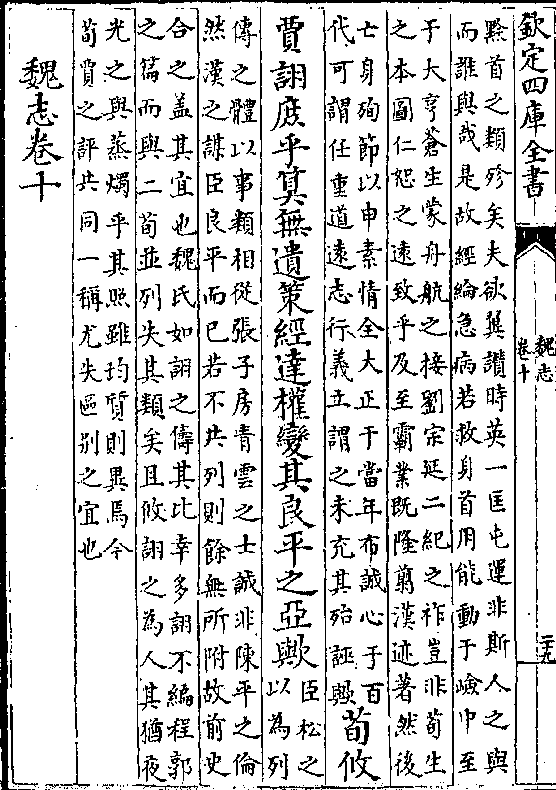 欽定四庫全書
魏志
卷十
二十九
黔首之類殄矣夫欲翼讚時英一匡屯運非斯人之與
而誰與哉是故經綸急病若救身首用能動于嶮中至
于大亨蒼生蒙舟航之接劉宗延二紀之祚豈非荀生
之本圖仁恕之遠致乎及至霸業既隆翦漢迹著然後
亡身殉節以申素情全大正于當年布誠心于百
代可謂任重道遠志行義立謂之未充其殆誣歟
荀攸
賈詡庶乎算無遺策經達權變其良平之亞歟
臣松之
以為列
傳之體以事類相從張子房青雲之士誠非陳平之倫
然漢之謀臣良平而已若不共列則餘無所附故前史
合之盖其宜也魏氏如詡之儔其比幸多詡不編程郭
之篇而與二荀並列失其類矣且攸詡之為人其猶夜
光之與蒸燭乎其照雖均質則異焉今
荀賈之評共同一稱尤失區别之宜也
魏志卷十